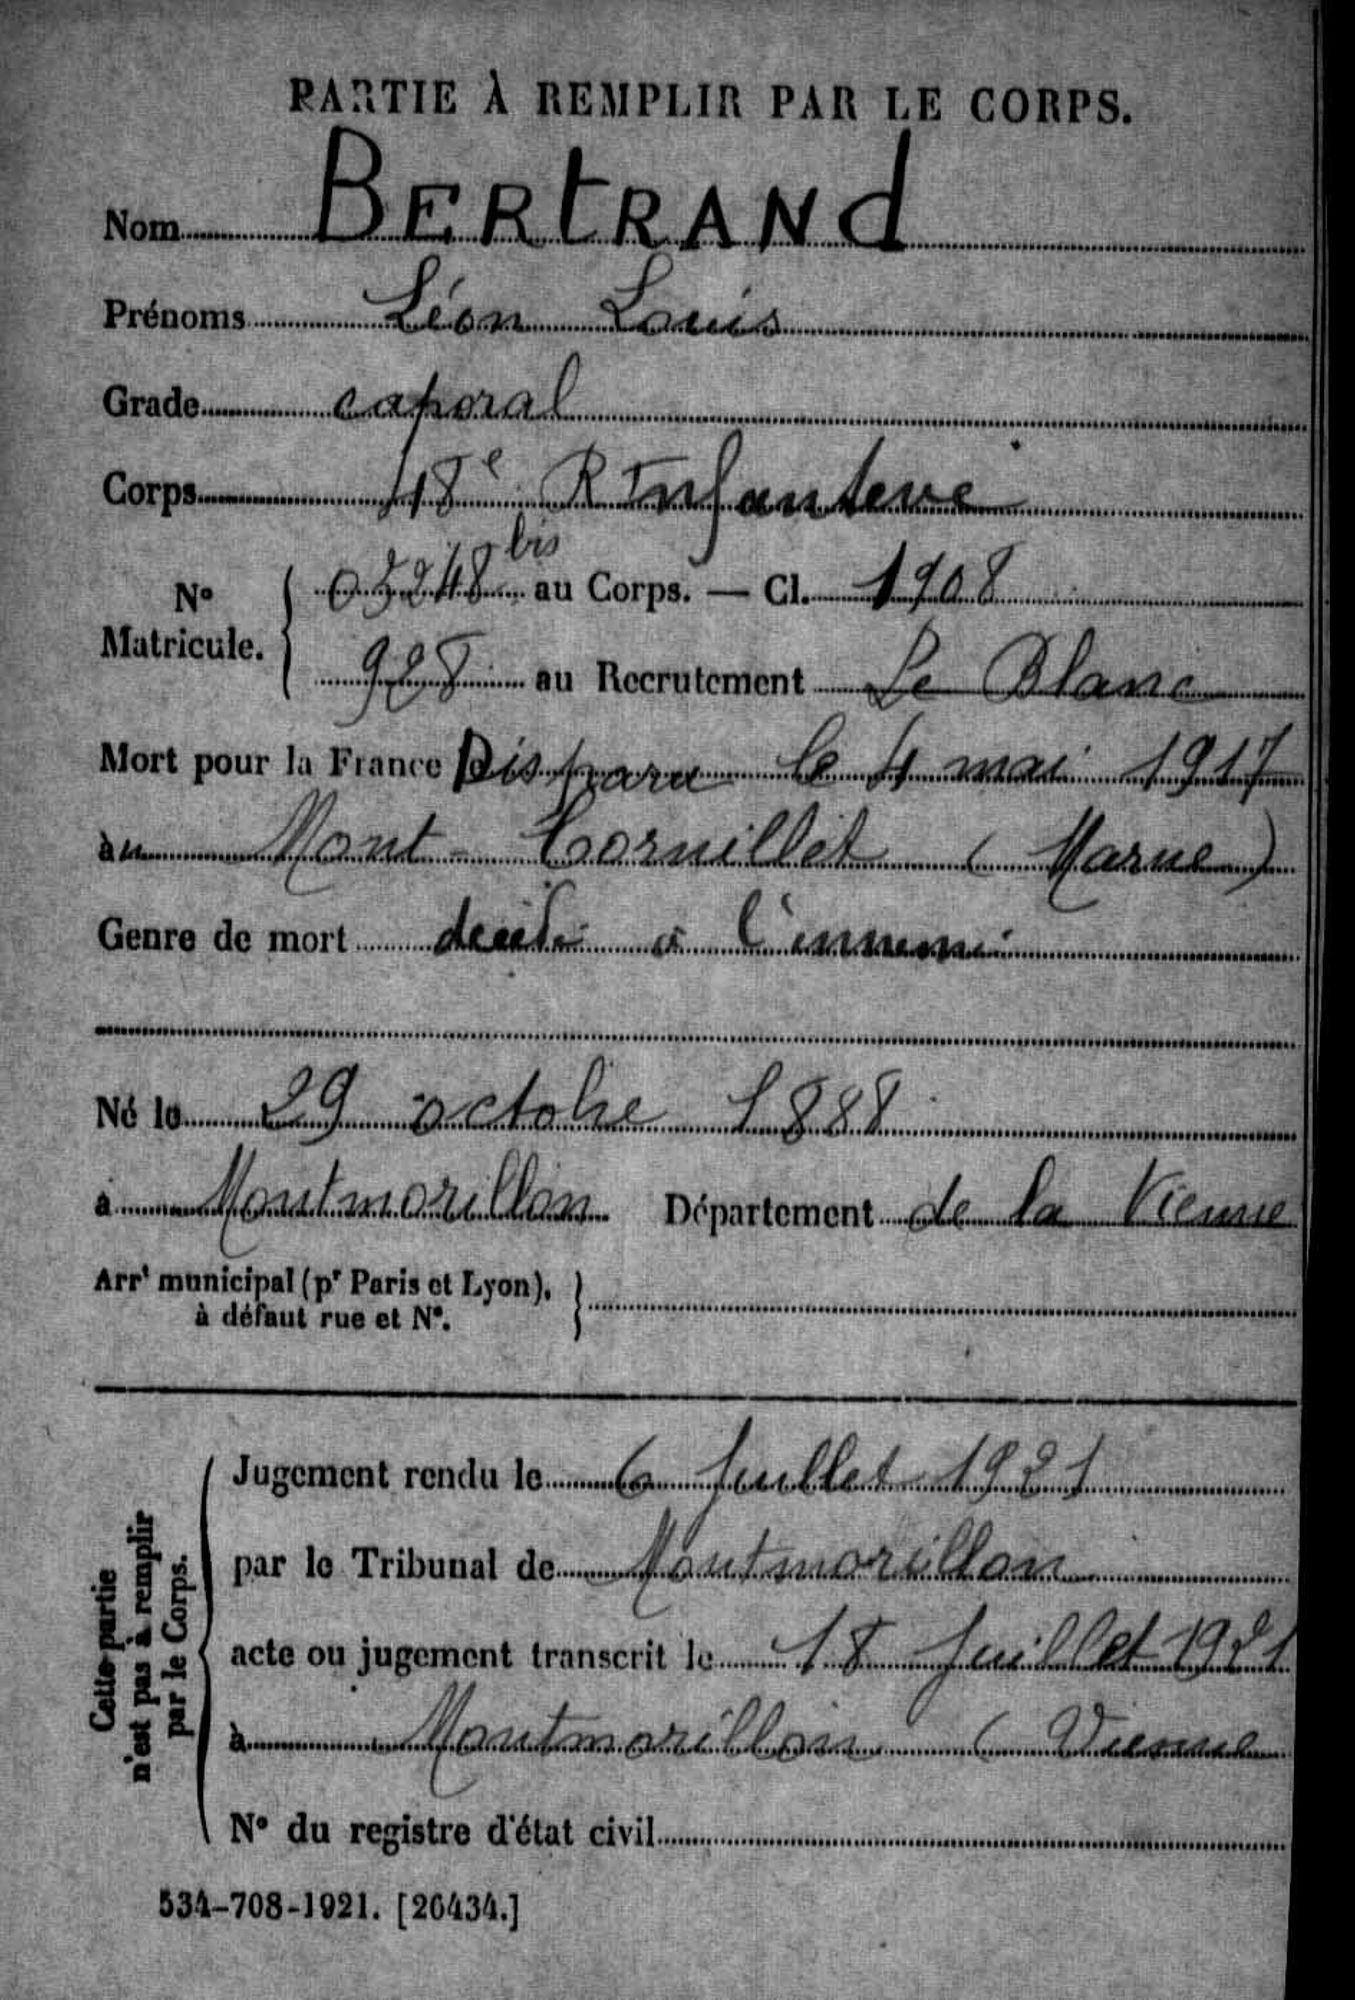 PARTIE À REMPLIR PAR LE CORPS.
Nom BERTRAND
Prénoms Léon Louis
Grade caporal
Corps 48e R Infanterie
N° Matricule. 05248 bis au Corps. — Cl. 1908
928 au Recrutement Le Blanc
Mort pour la France le Disparu le 4 mai 1917
au Mont-Cornillet (Marne)
Genre de mort décédé à l'ennemi
Né le 29 octobre 1888
à Montmorillon Département de la Vienne
Arrt municipal (pr Paris et Lyon),
à défaut rue et N°.
Cette partie
n'est pas à remplir
par le Corps.
Jugement rendu le 6 Juillet 1921
par le Tribunal de Montmorillon
acte ou jugement transcrit le 18 Juillet 1921
à Montmorillon (Vienne
N° du registre d'état civil
534-708-1921. [26434.]